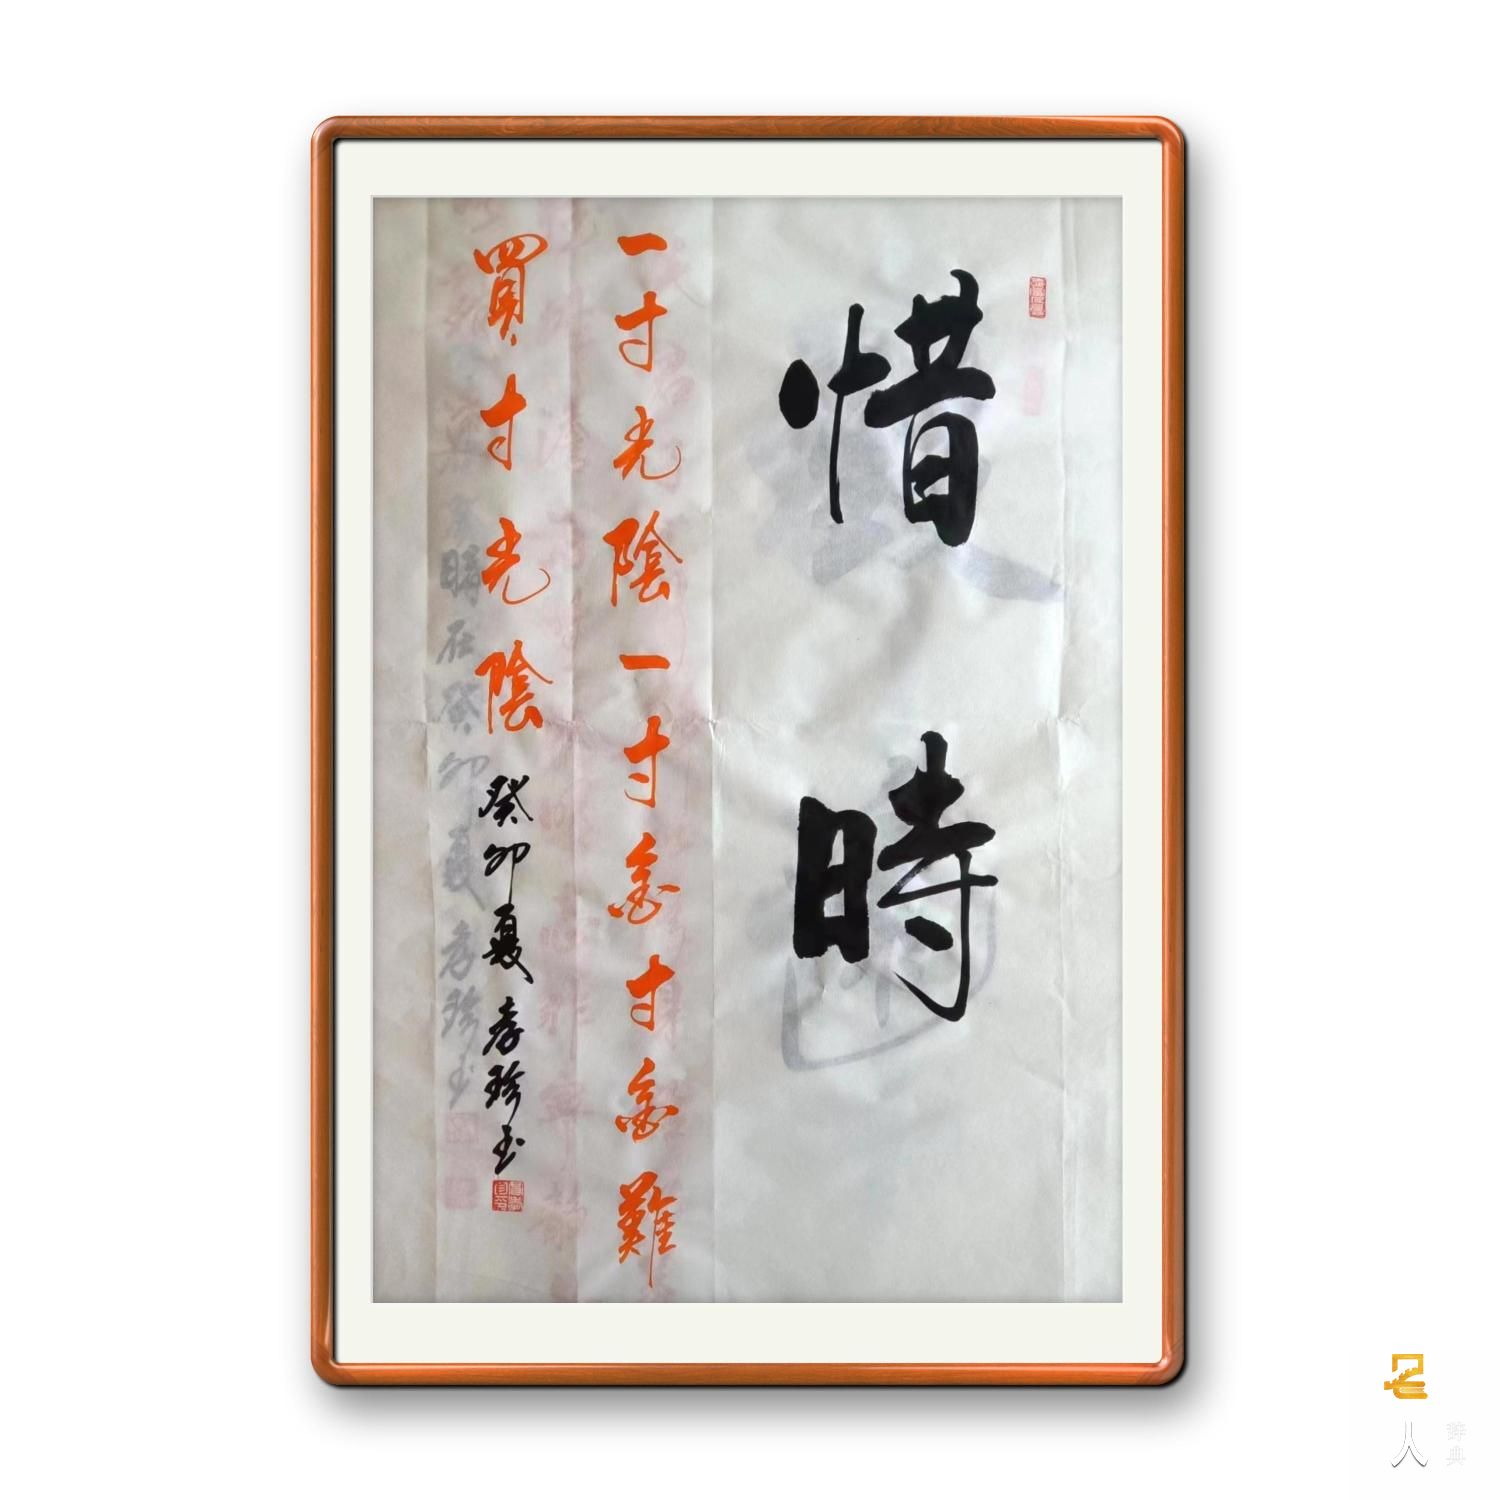 惜時
一寸光陰一寸金寸金難
買寸光陰
癸卯夏孝珍书
名
人
辞典